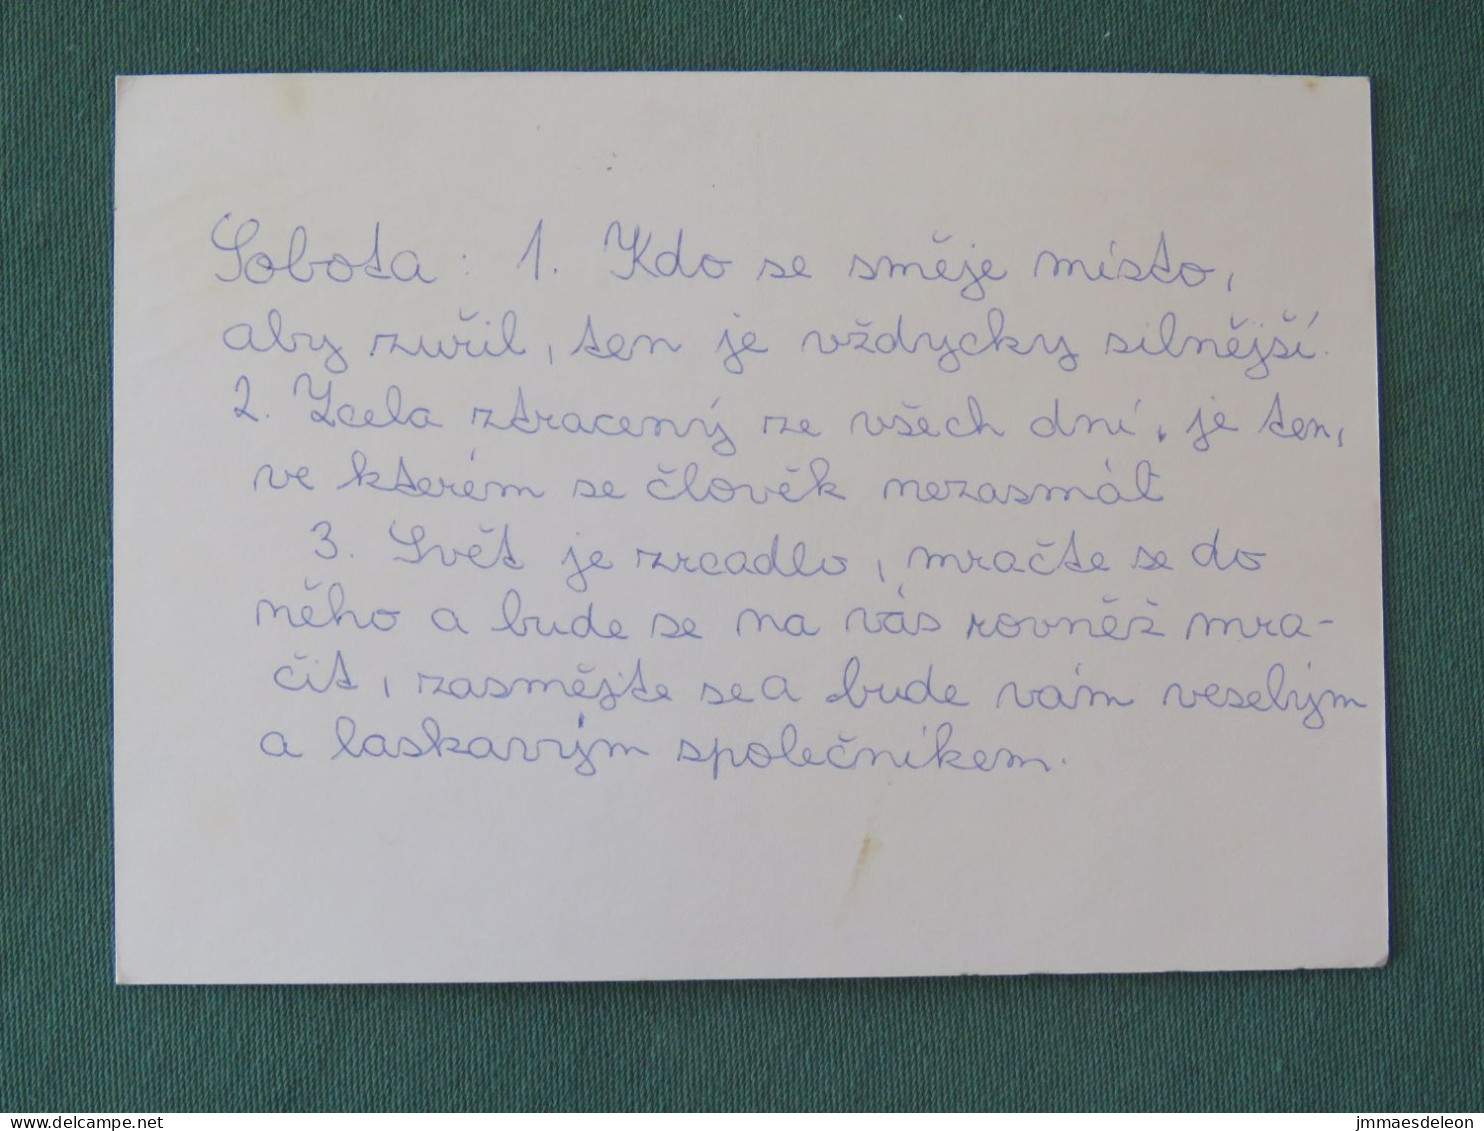 Sobota : 1. Kdo se směje místo,
aby zuřil, ten je vždycky silnější.
2. Zcela ztracený ze všech dní, je ten,
ve kterém se člověk nezasmál
3. Svět je zrcadlo, mračte se do
něho a bude se na vás rovněž mra-
čit, zasmějte se a bude vám veselým
a laskavým společníkem.
www.delcampe.net
jmmaesdeleon